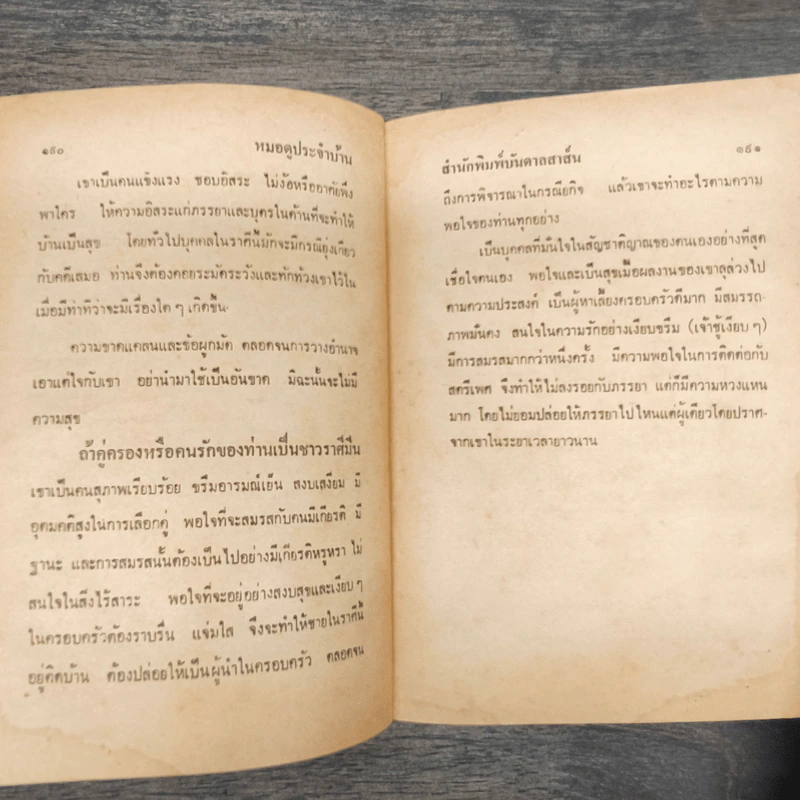 ๑๙๐
หมอดูประจำบ้าน
เขาเป็นคนแข็งแรง ชอบอิสระ ไม่ง้อหรืออาศัยพึ่ง
พาใคร ให้ความอิสระแก่ภรรยาและบุตรในด้านที่จะทำให้
บ้านเป็นสุข โดยทั่วไปบุคคลในราศีนี้มักจะมีกรณียุ่งเกี่ยว
กับคดีเสมอ ท่านจึงต้องคอยระมัดระวังและทักท้วงเขาไว้ใน
เมื่อมีท่าทีว่าจะมีเรื่องใด ๆ เกิดขึ้น
ความขาดแคลนและข้อผูกมัด ตลอดจนการวางอำนาจ
เอาแต่ใจกับเขา อย่านำมาใช้เป็นอันขาด มิฉะนั้นจะไม่มี
ความสุข
ถ้าคู่ครองหรือคนรักของท่านเป็นชาวราศีมีน
เขาเป็นคนสุภาพเรียบร้อย ขรึมอารมณ์เย็น สงบเสงี่ยม มี
อุดมคติสูงในการเลือกคู่ พอใจที่จะสมรสกับคนมีเกียรติ มี
ฐานะ และการสมรสนั้นต้องเป็นไปอย่างมีเกียรติหรูหรา ไม่
สนใจในสิ่งไร้สาระ พอใจที่จะอยู่อย่างสงบสุขและเงียบ ๆ
ในครอบครัวต้องราบรื่น แจ่มใส จึงจะทำให้ชายในราศีนี้
อยู่ติดบ้าน ต้องปล่อยให้เป็นผู้นำในครอบครัว ตลอดจน
สำนักพิมพ์บันดาลสาส์น
๑๙๑
ถึงการพิจารณาในกรณียกิจ แล้วเขาจะทำอะไรตามความ
พอใจของท่านทุกอย่าง
เป็นบุคคลที่มั่นใจในสัญชาติญาณของตนเองอย่างที่สุด
เชื่อใจตนเอง พอใจและเป็นสุขเมื่อผลงานของเขาลุล่วงไป
ตามความประสงค์ เป็นผู้หาเลี้ยงครอบครัวดีมาก มีสมรรถ-
ภาพมั่นคง สนใจในความรักอย่างเงียบขรึม (เจ้าชู้เงียบ ๆ)
มีการสมรสมากกว่าหนึ่งครั้ง มีความพอใจในการติดต่อกับ
สตรีเพศ จึงทำให้ไม่ลงรอยกับภรรยา แต่ก็มีความหวงแหน
มาก โดยไม่ยอมปล่อยให้ภรรยาไปไหนแต่ผู้เดียวโดยปราศ-
จากเขาในระยาเวลายาวนาน